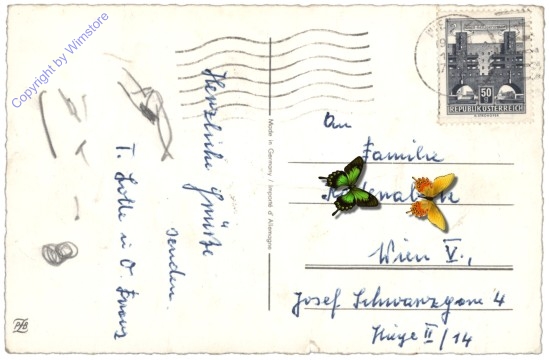 Copyright by Wimstore
Herzliche Grüße
senden
T. Lotte u. O. Franz
Made in Germany / Importé d'Allemagne
50
REPUBLIK ÖSTERREICH
An
Familie
Wien V.,
Josef Schwarzgasse 4
Stiege II/14
PHB